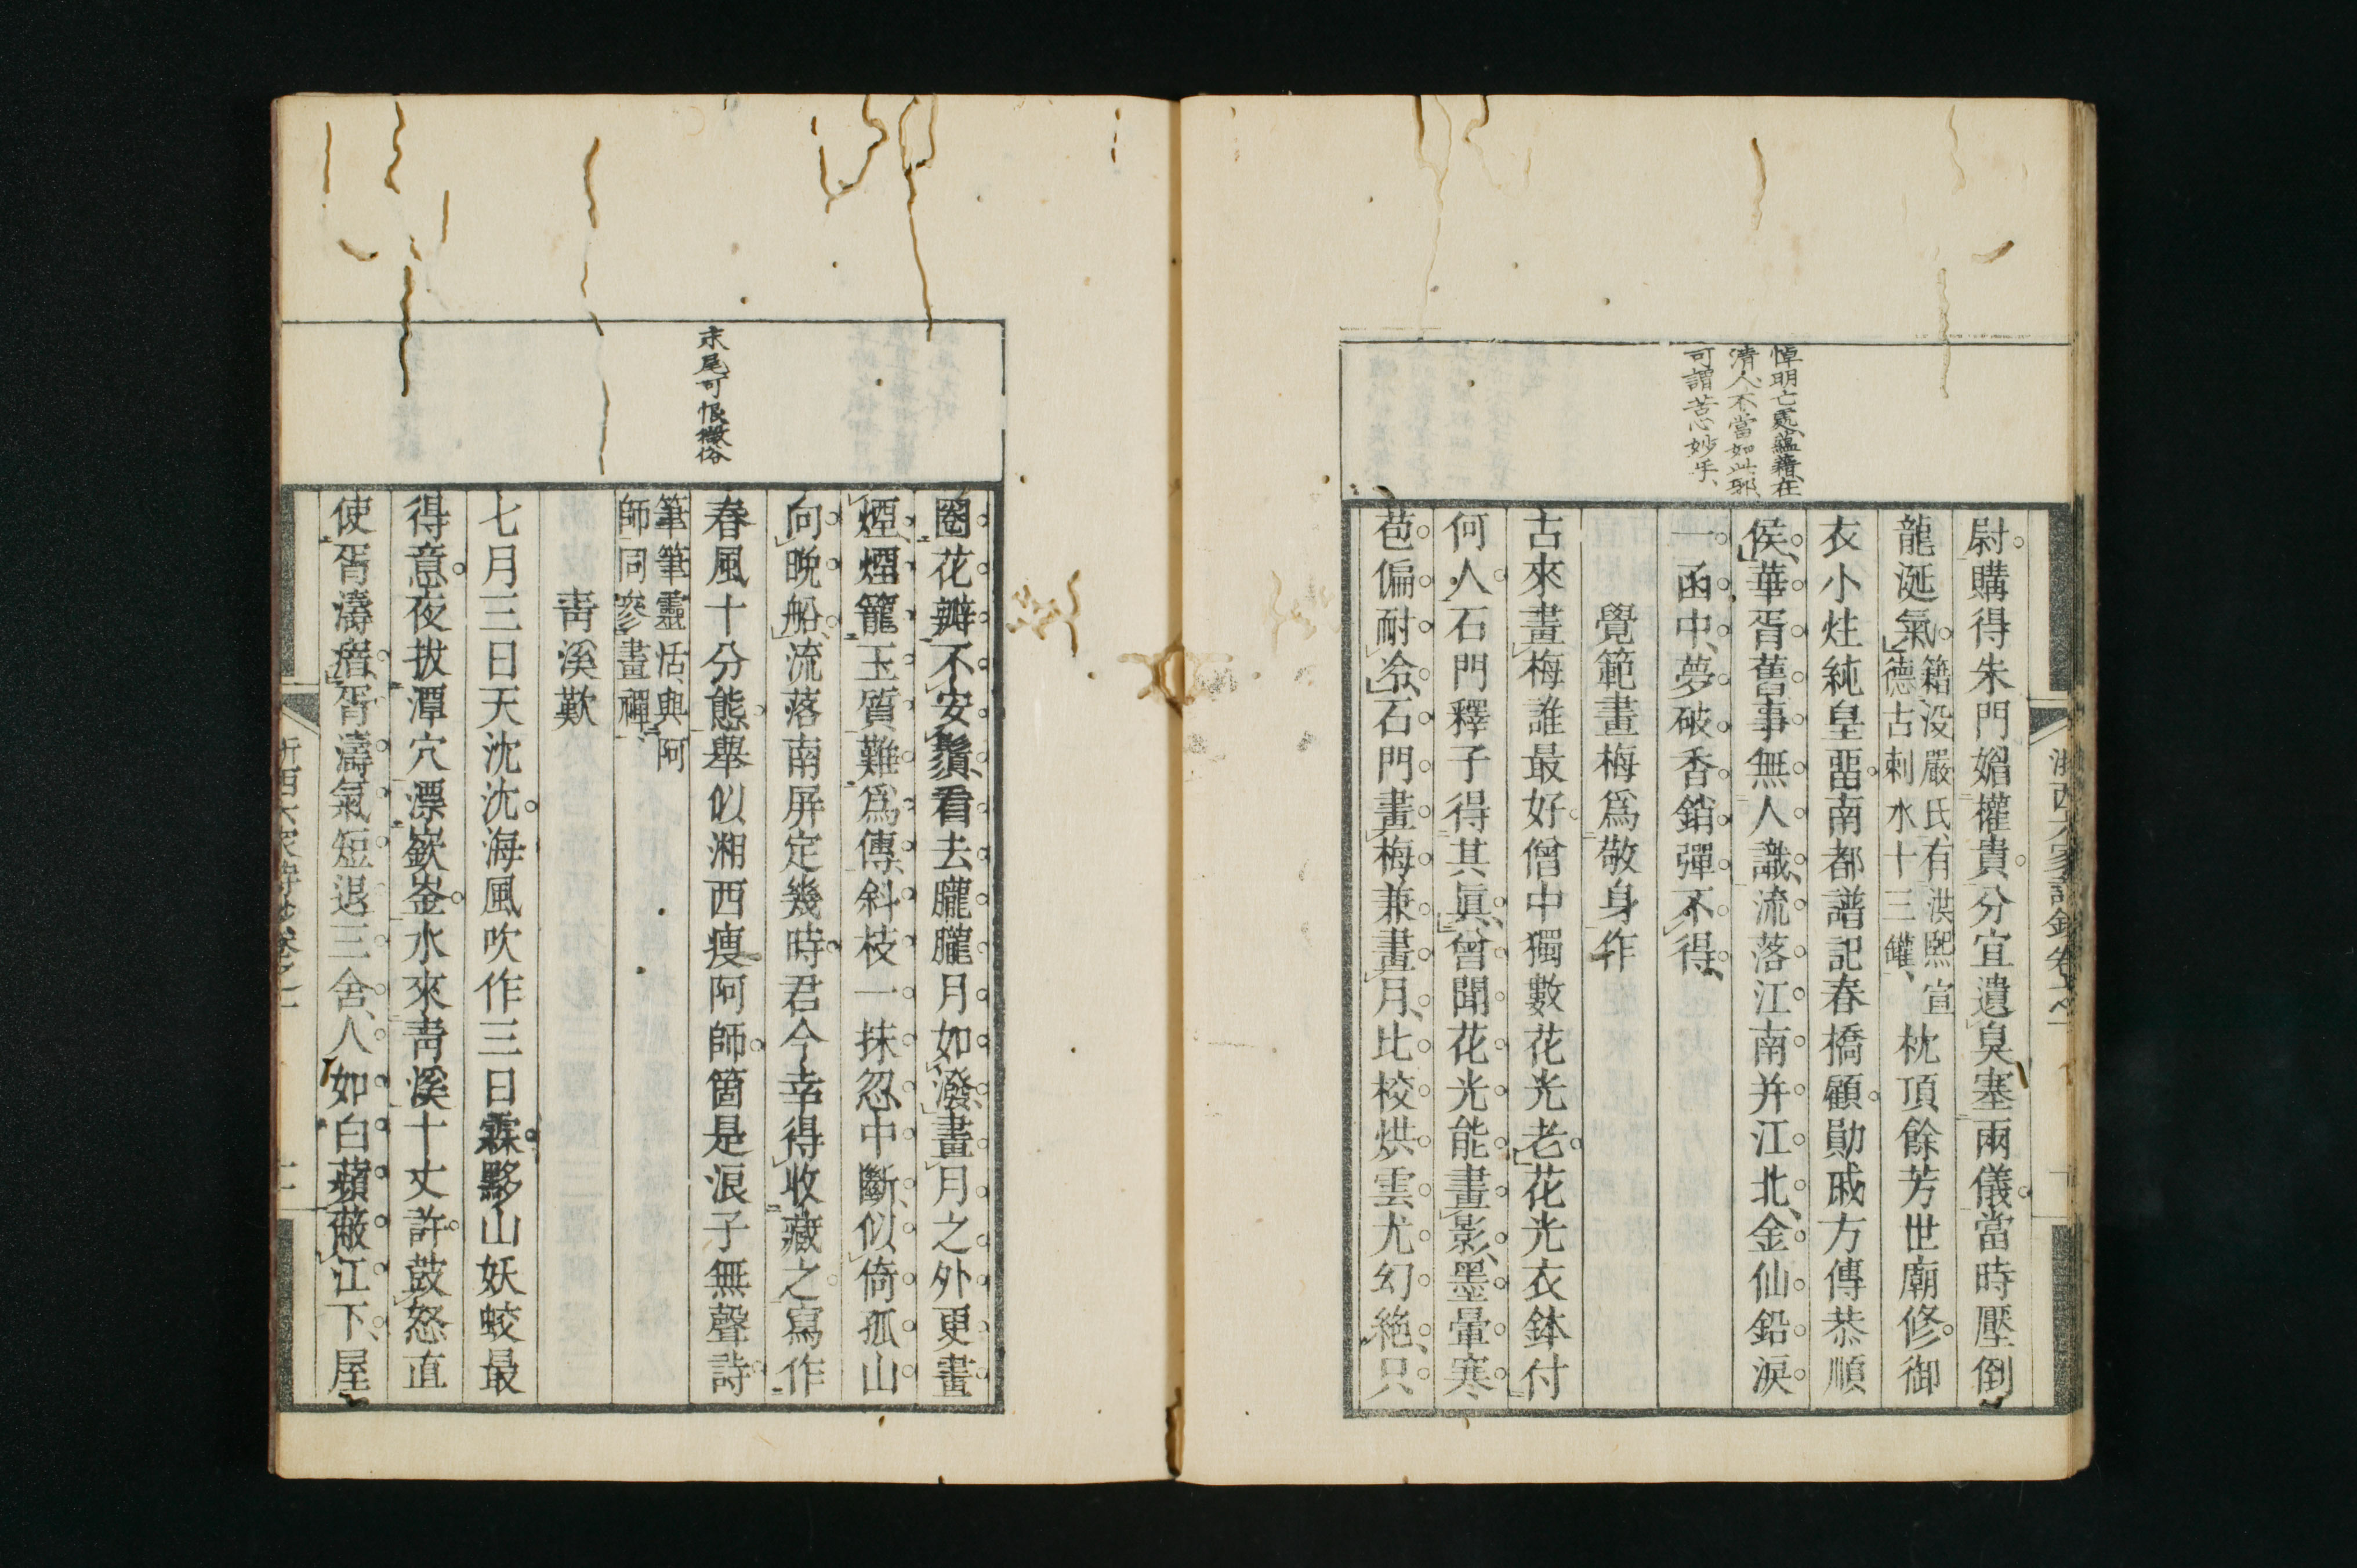 浙西六家詩鈔卷之一
悼明亡處蘊藉在
清人不當如此邪
可謂苦心妙手
尉購得朱門媚權貴分宜遺臭塞兩儀當時壓倒
龍涎氣籍没嚴氏有洪熙宣
德古剌水十三罐枕頂餘芳世廟修御
衣小炷純皇畱南都譜記春橋顧勛戚方傳恭順
侯華胥舊事無人識流落江南幷江北金仙鉛淚
一函中夢破香銷彈不得
覺範畫梅爲敬身作
古來畫梅誰最好僧中獨數花光老花光衣鉢付
何人石門釋子得其眞曾聞花光能畫影墨暈寒
苞偏耐冷石門畫梅兼畫月比校烘雲尤幻絕只
末尾可恨微俗
圈花瓣不安鬚看去朧朧月如潑畫月之外更畫
煙煙籠玉質難爲傳斜枝一抹忽中斷似倚孤山
向晚船流落南屏定幾時君今幸得收藏之寫作
春風十分態舉似湘西痩阿師箇是浪子無聲詩
筆筆靈活與阿
師同參畫禪
靑溪歎
七月三日天沈沈海風吹作三日霖黟山妖蛟最
得意夜拔潭穴漂嶔崟水來靑溪十丈許鼓怒直
使胥濤㿉胥濤氣短退三舍人如白蘋蔽江下屋
浙西六家詩鈔卷之一